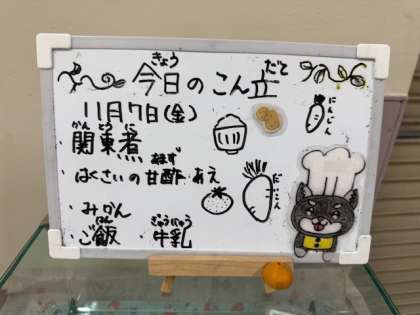 今日のこん立
きょう だて
11月7日(金)
関東煮
かんとうに
にんじん
はくさいの甘酢あえ
あまず
だいこん
みかん
ご飯 牛乳
はん ぎゅうにゅう